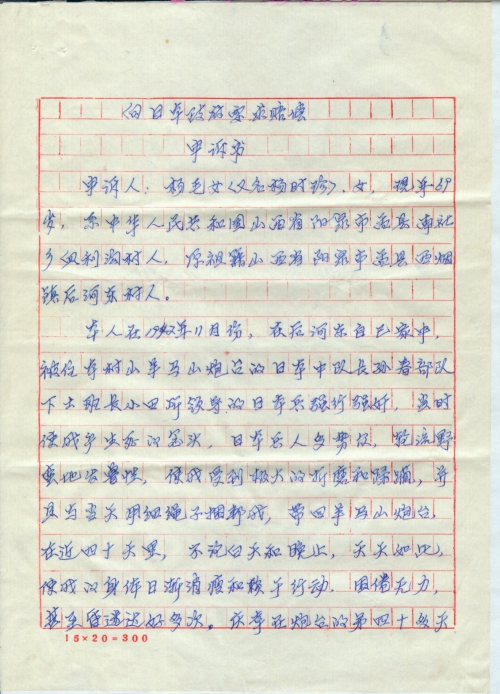 向日本政府要求赔偿
申诉书
申诉人:杨毛女(又名杨时珍),女,现年69
岁,系中华人民共和国山西省阳泉市盂县南社
乡人,原祖籍山西省阳泉市盂县西烟
镇后河东村人。
本人在1942年11月份,在后河东自己家中,
被住本村山羊马山炮台的日军中队长部队
下士班长小四所领导的日军兵强行强奸,当时
使我产生的念头,日军兵人多势众,轮流野
蛮地发兽性,使我受到极大的折磨和蹂躏,并
且与当天用细绳子捆绑我,带回羊马山炮台,
在近四十天里,不论白天和晚上,天天如此,
使我的身体日渐消瘦和赖于行动,困倦无力,
甚至昏迷过好多次。在炮台的第四十多天
15×20=300